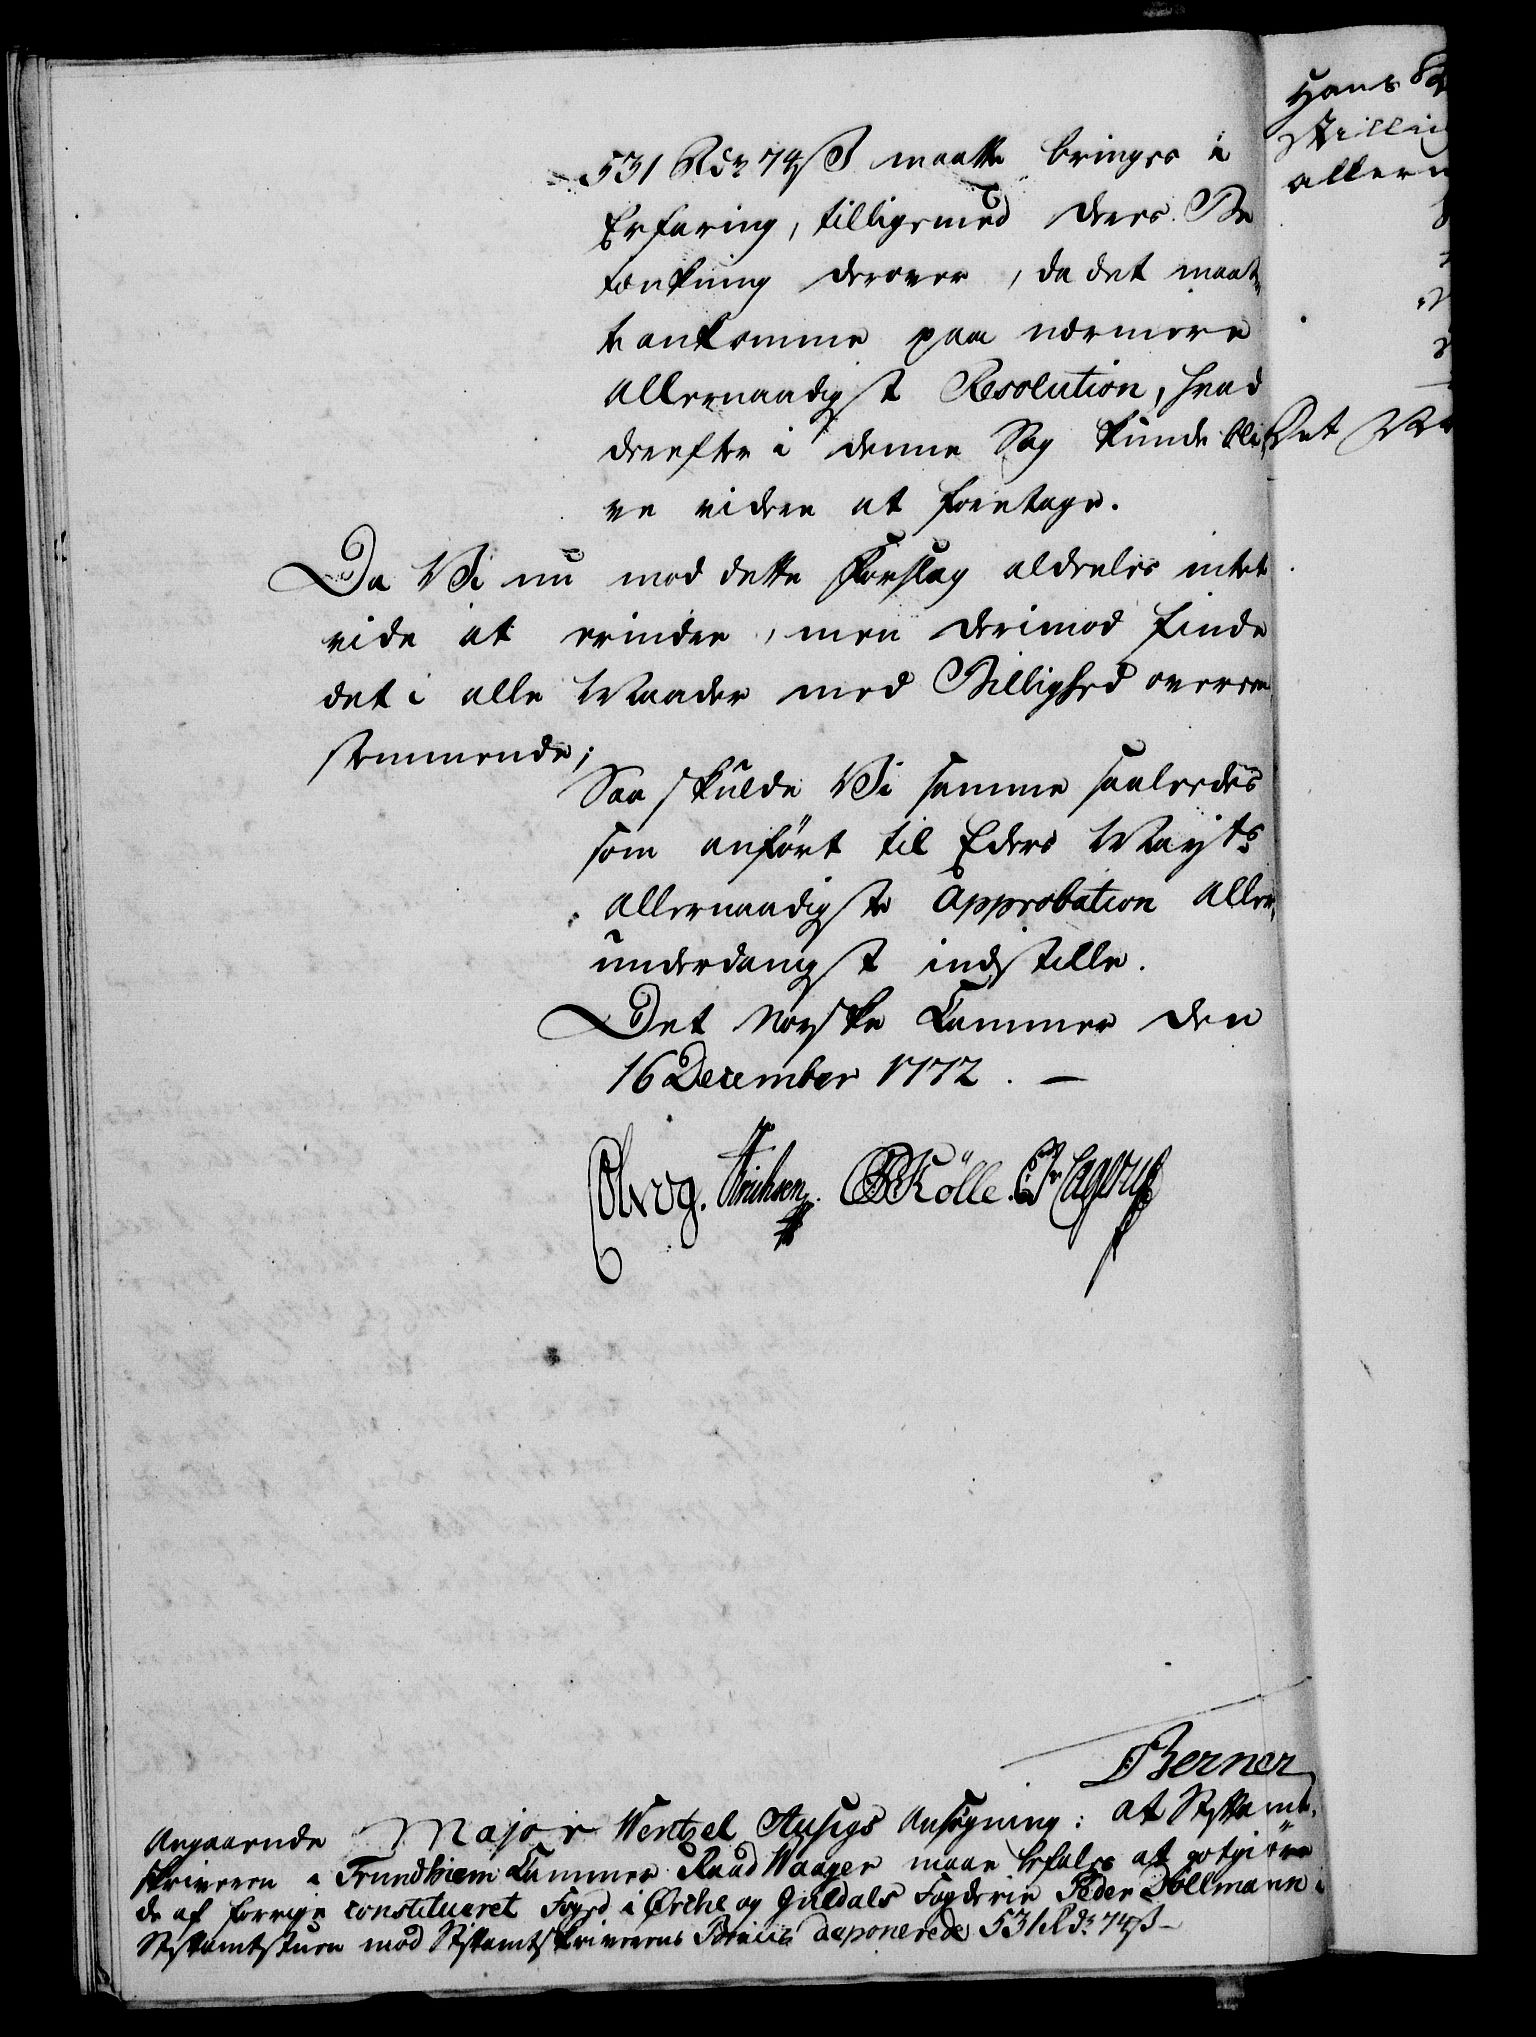 531 Rdr 74ß maatte bringes i
Erfaring, tilligemed deres Be
tænkning derover, da det maat
te ankomme paa nærmere
allernaadigst Resolution, hvad
derefter i denne Sag kunde bli
ve videre at foretage.
Da Vi nu mod dette Forslag aldeeles intet
vide at erindre, men derimod finde
det i alle Maader med Billighed overeen
stemmende;
Saa skulde Vi samme saaledes
som anført til Eders Mayts
allernaadigste Approbation aller
underdanigst indstille.
Det Norske Kammer den
16 December 1772. —
Colvog. Erichsen. Kölle.
Berner
Angaaende Major Wentzel Ansøgning: at Stiftamt
skriveren i Trundhiem Kammer Raad Waager maae befales at godtgiöre
de af forrige constitueret Foged i Ørchel og Guldals Fogderie Peder Dollmann i
Stiftamtstuen mod Stiftamtskriverens deponerede 531 Rdr 74ß —
Hans
allern
Det